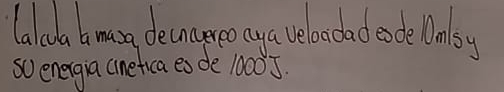 Calcula la masa de un cuerpo cuya velocidad es de 10m/s y
su energia cinetica es de 1000J.